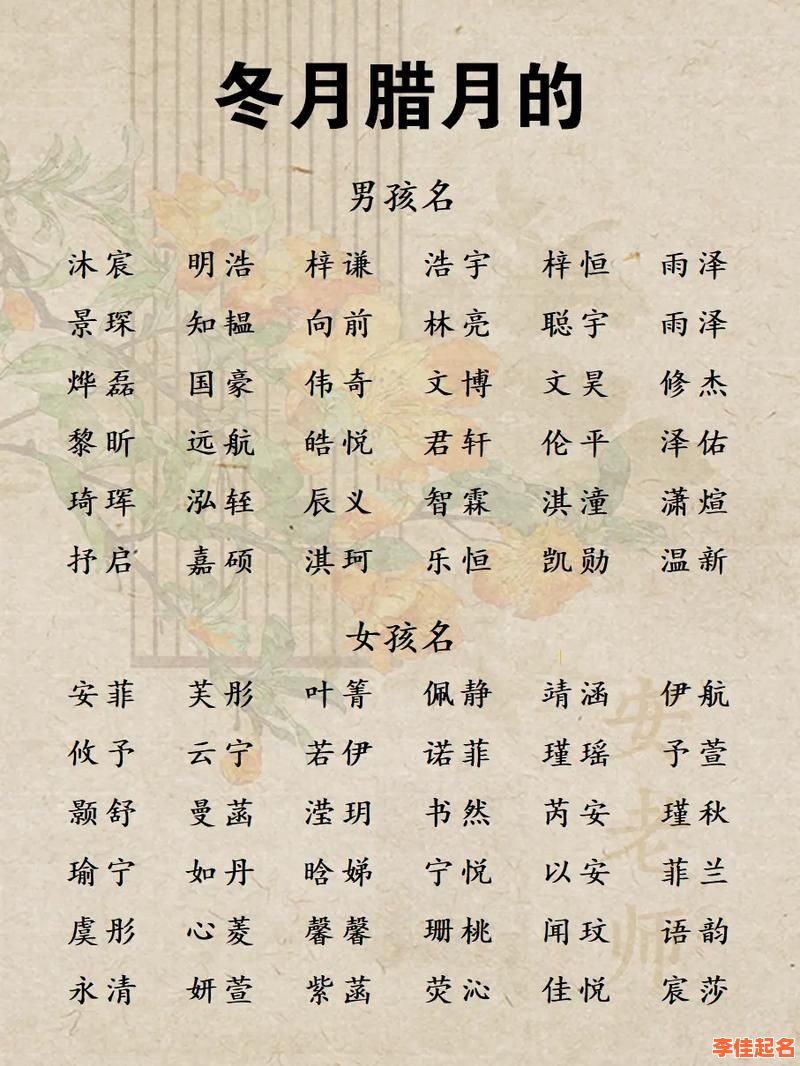 冬月腊月的
男孩名
沐宸 明浩 梓谦 浩宇 梓恒 雨泽
景琛 知韫 向前 林亮 聪宇 雨泽
烨磊 国豪 伟奇 文博 文昊 修杰
黎昕 远航 皓悦 君轩 伦平 泽佑
琦珲 泓轾 辰义 智霖 淇潼 潇煊
抒启 嘉硕 淇珂 乐恒 凯勋 温新
女孩名
安菲 芙彤 叶箐 佩静 靖涵 伊航
攸予 云宁 若伊 诺菲 瑾瑶 予萱
颢舒 曼菡 滢玥 书然 芮安 瑾秋
瑜宁 如丹 晗娣 宁悦 以安 菲兰
虞彤 心菱 馨馨 珊桃 闻玟 语韵
永清 妍萱 紫菡 荧沁 佳悦 宸莎
安老师
李佳起名